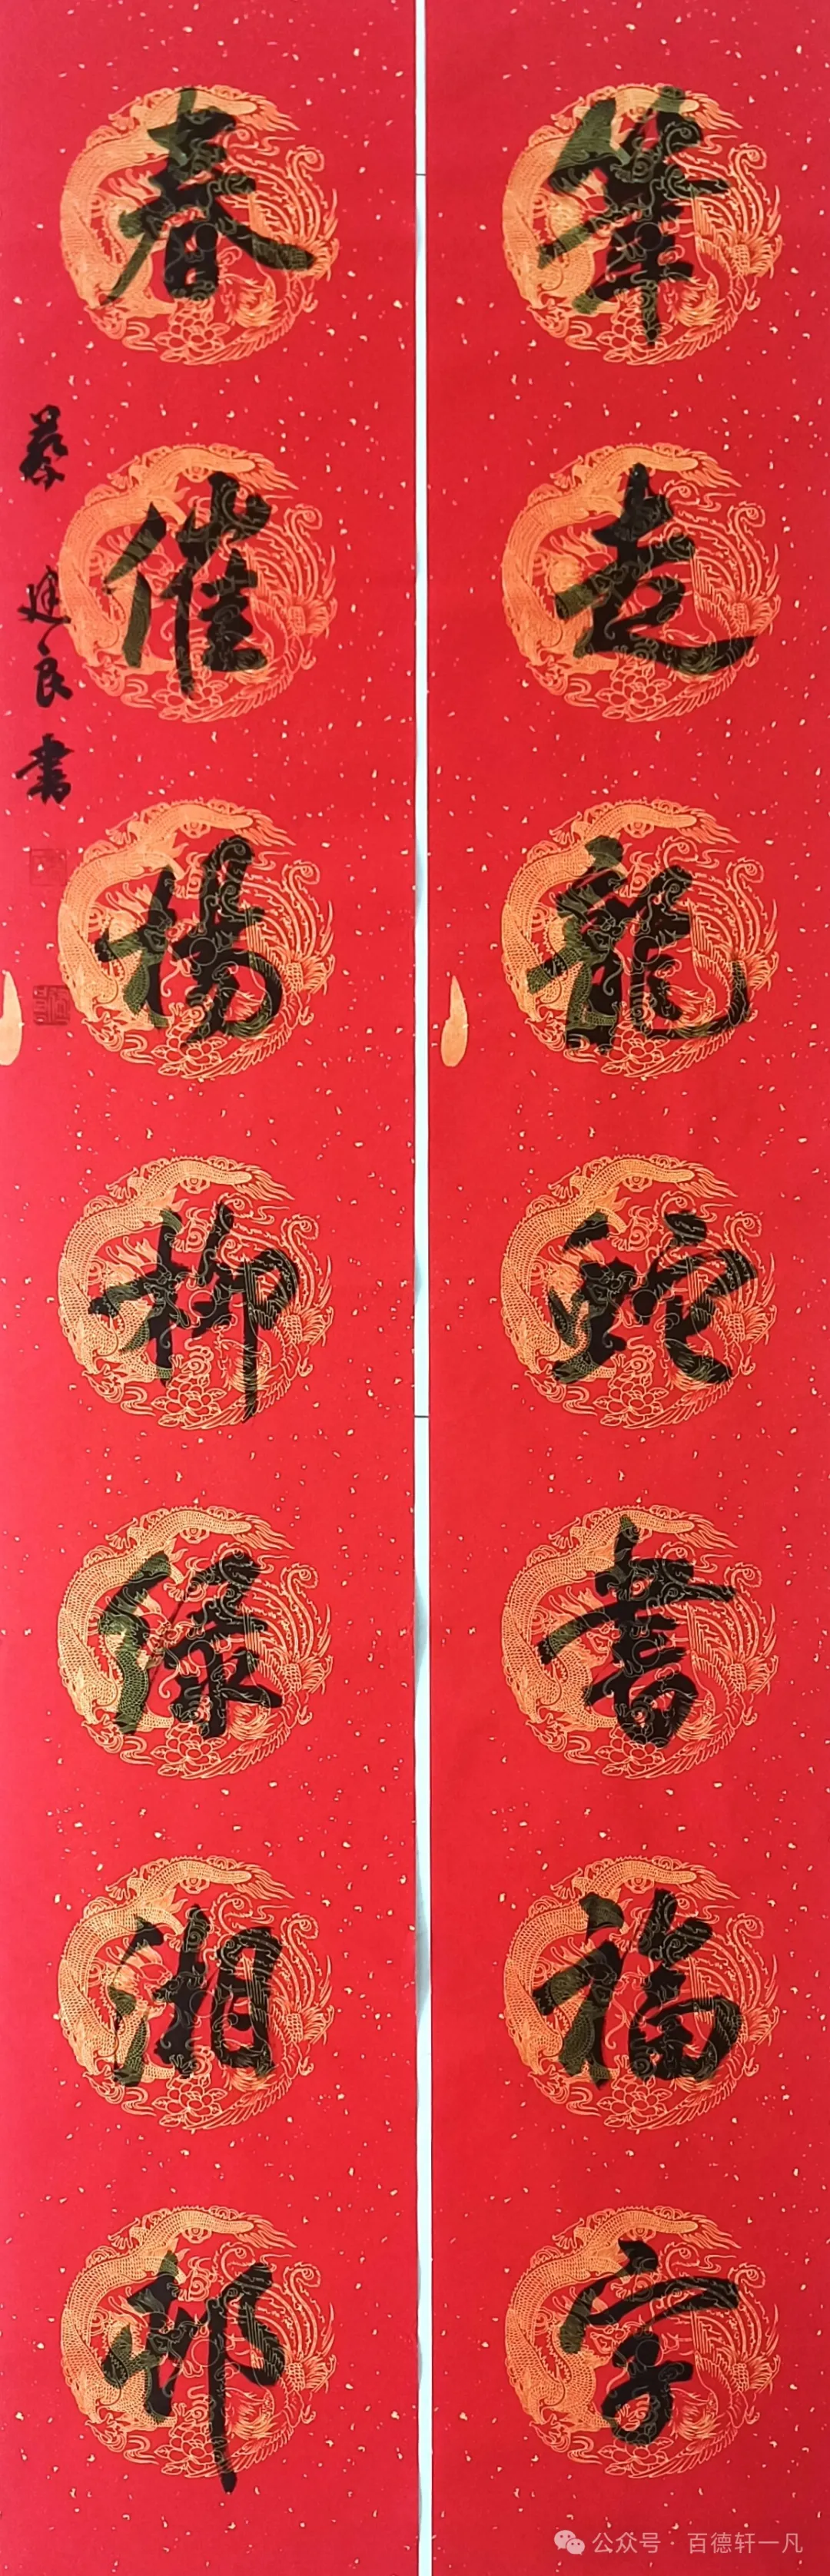 筆走龍蛇書福字
春催楊柳緑湘邨
蔡建良書
公众号·百德轩一凡